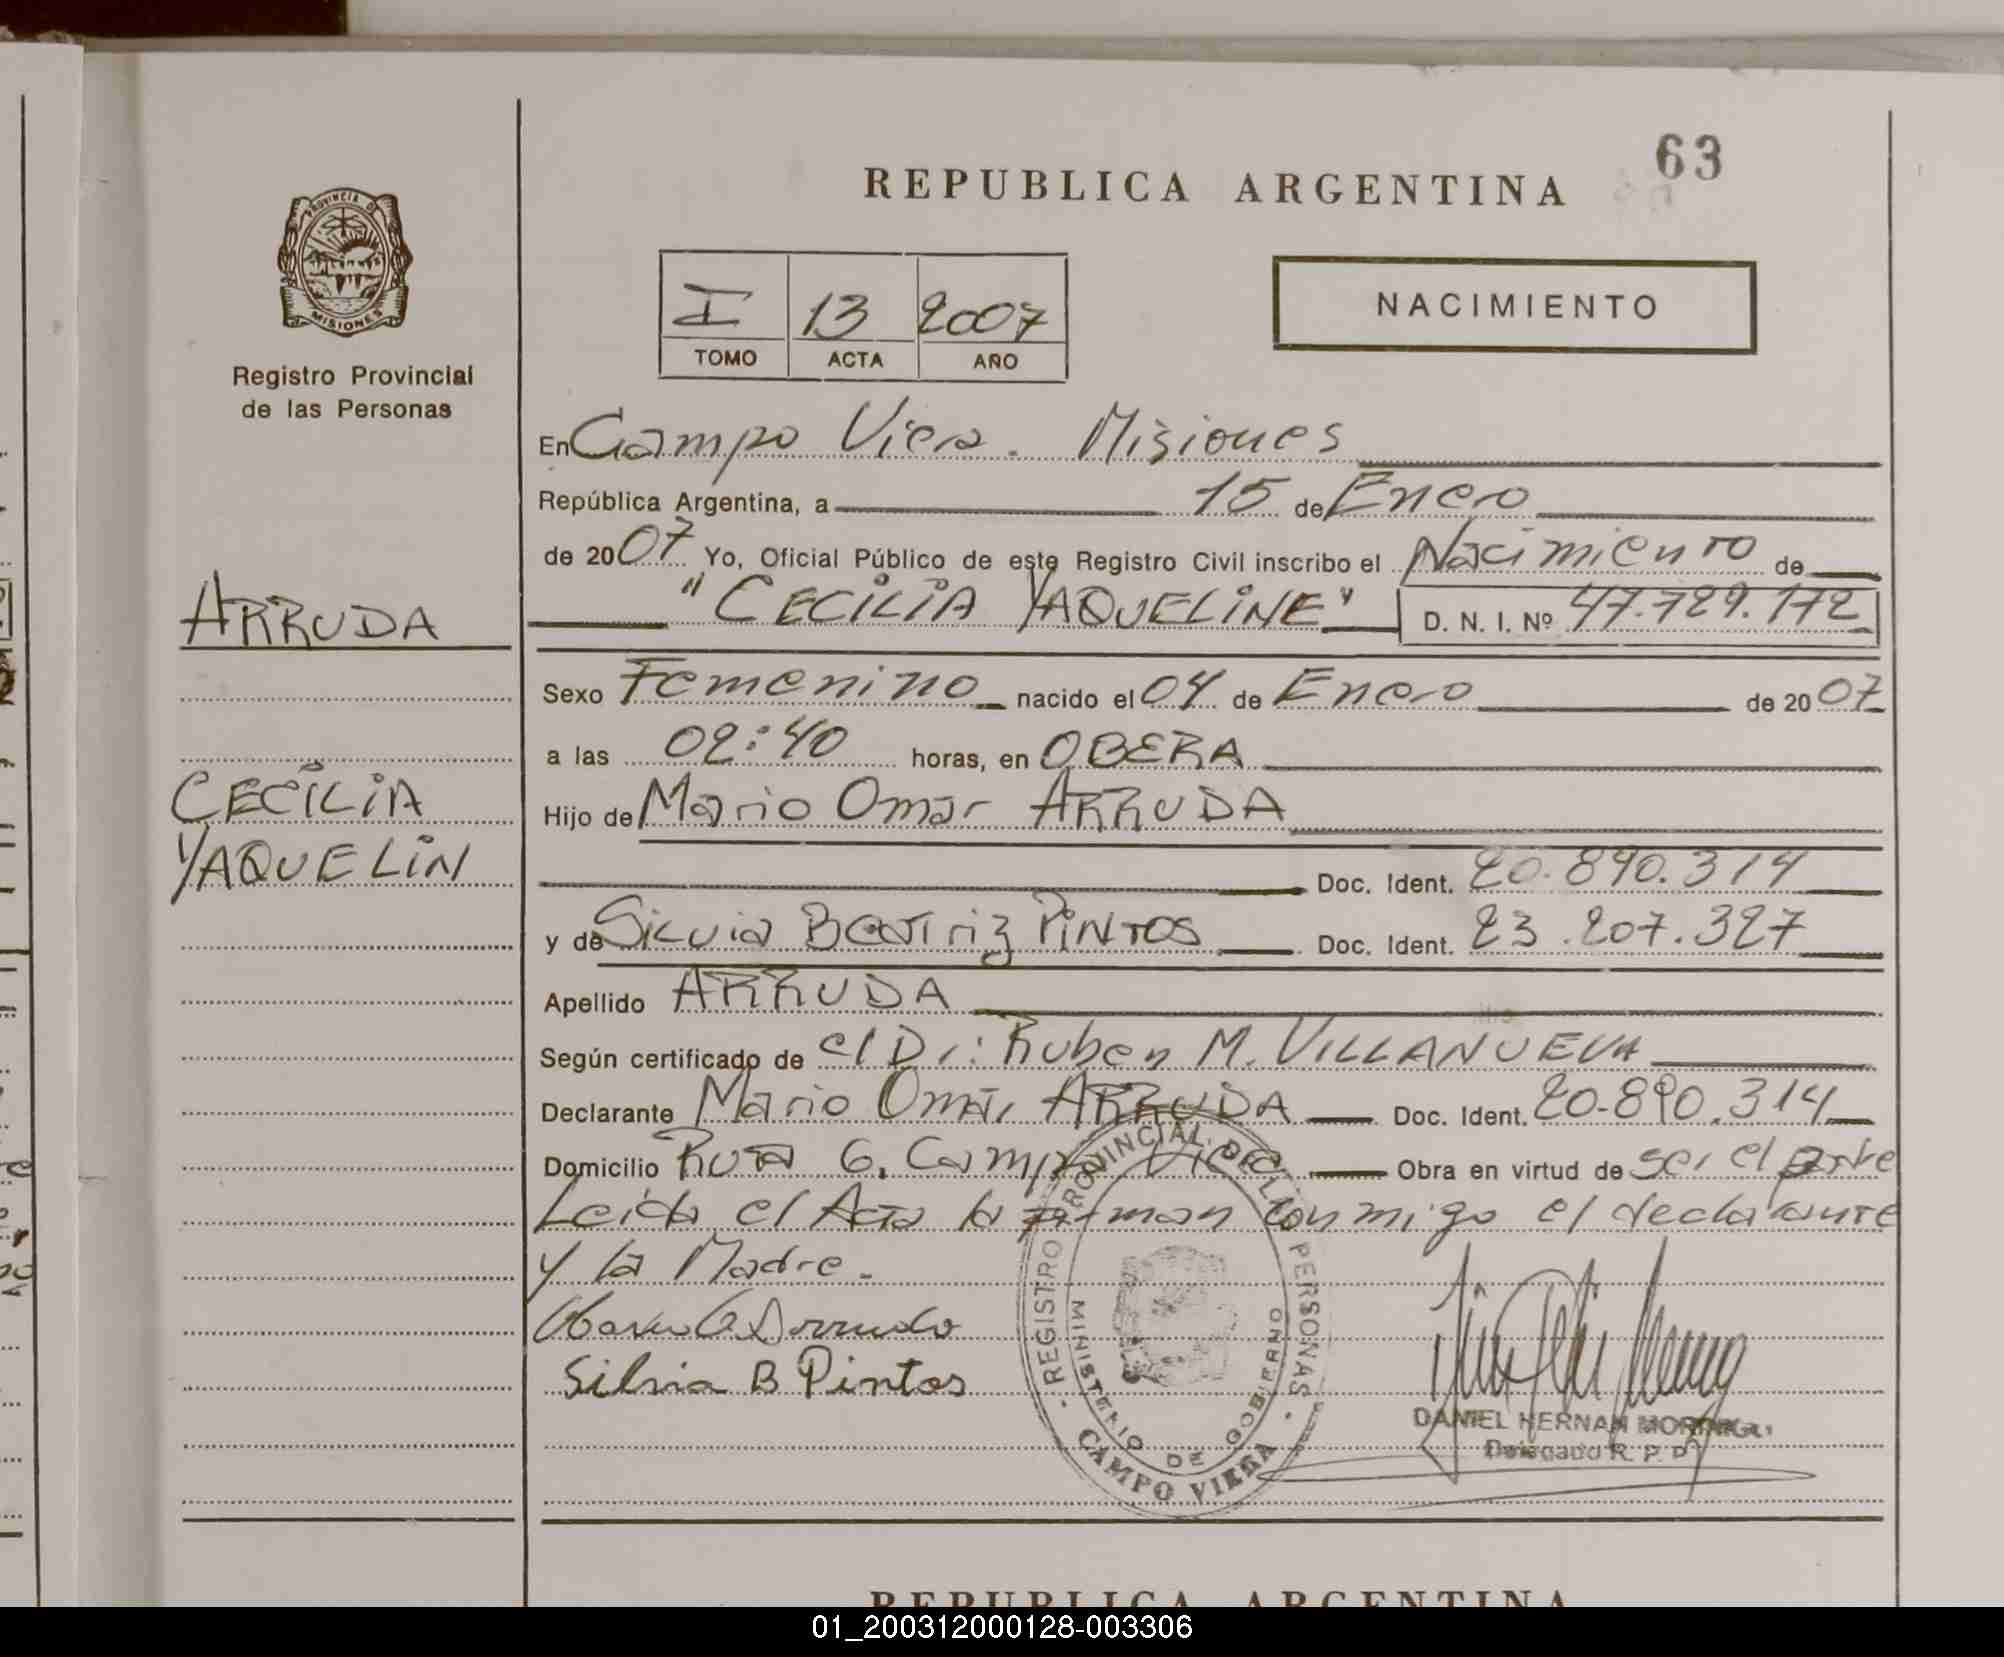 63
REPUBLICA ARGENTINA
PROVINCIA DE
MISIONES
Registro Provincial
de las Personas
I 13 2007
TOMO ACTA AÑO
NACIMIENTO
En Campo Viera. Misiones
República Argentina, a 15 de Enero
de 2007 Yo, Oficial Público de este Registro Civil inscribo el Nacimiento de
"CECILIA YAQUELINE" D. N. I. Nº 47.729.172
ARRUDA
Sexo Femenino nacido el 04 de Enero de 2007
a las 02:40 horas, en OBERA
CECILIA
YAQUELIN
Hijo de Mario Omar ARRUDA
Doc. Ident. 20.890.314
y de Silvia Beatriz PINTOS Doc. Ident. 23.207.327
Apellido ARRUDA
Según certificado de el Dr: Ruben M. VILLANUEVA
Declarante Mario Omar ARRUDA Doc. Ident. 20.890.314
Domicilio Ruta 6. Campo Viera Obra en virtud de ser el padre
Leida el Acta la firman conmigo el declarante
y la Madre.
Arrudo
Silvia B Pintos
REGISTRO PROVINCIAL DE LAS PERSONAS
MINISTERIO DE GOBIERNO
CAMPO VIERA
DANIEL HERNAN
Delegado R. P. P.
REPUBLICA ARGENTINA
01_200312000128-003306